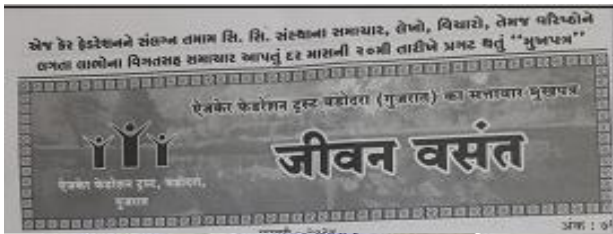 એજ કેર ફેડરેશનને સંલગ્ન તમામ સિ. સિ. સંસ્થાના સમાચાર, લેખો, વિચારો, તેમજ વરિષ્ઠોને
લગતા લાભોના વિગતસહ સમાચાર આપતું દર માસની ૨૦મી તારીખે પ્રગટ થતું "મુખપત્ર"
ऐजकेर फेडरेशन ट्रस्ट वडोदरा (गुजरात) का सत्तावार मुखपत्र
જીવન વસંત
ऐजकेर फेडरेशन ट्रस्ट, वडोदरा,
गुजरात
अंक :